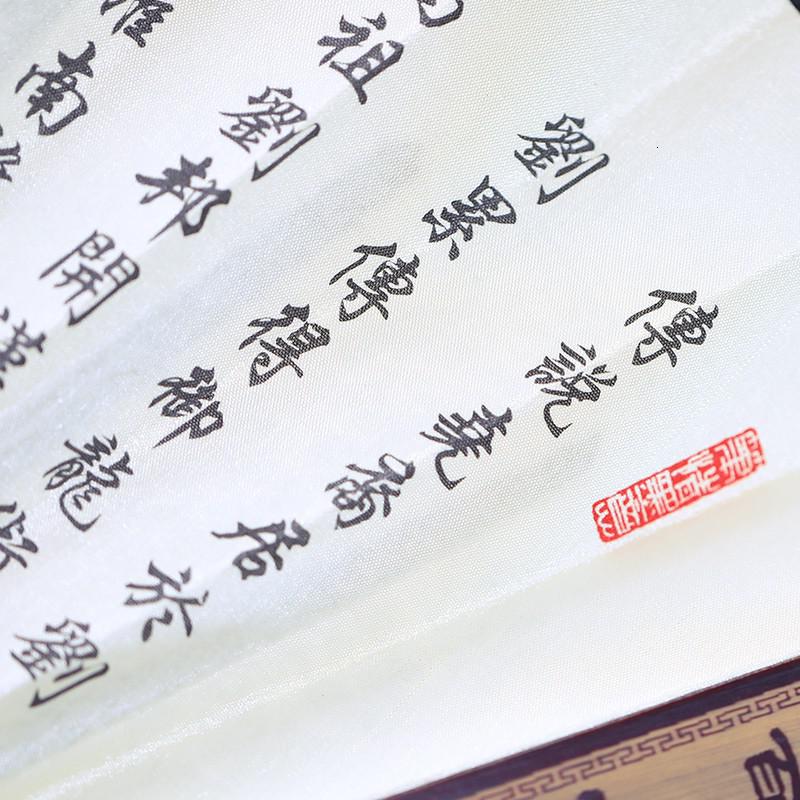 傳說堯裔居於劉
劉累傳得御龍
祖劉邦開漢
淮南
百